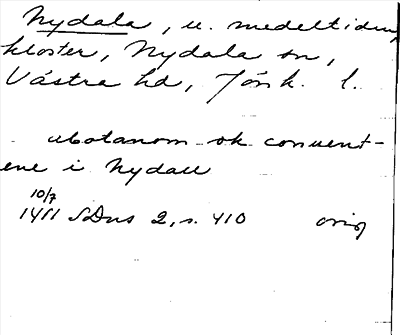 Nydala, u. medeltidu,
kloster, Nydala sn,
Västra hd, Jönk. l.
abotanom ok conuent-
ene i Nydall
10/7
1411 SDns 2, s. 410 orig